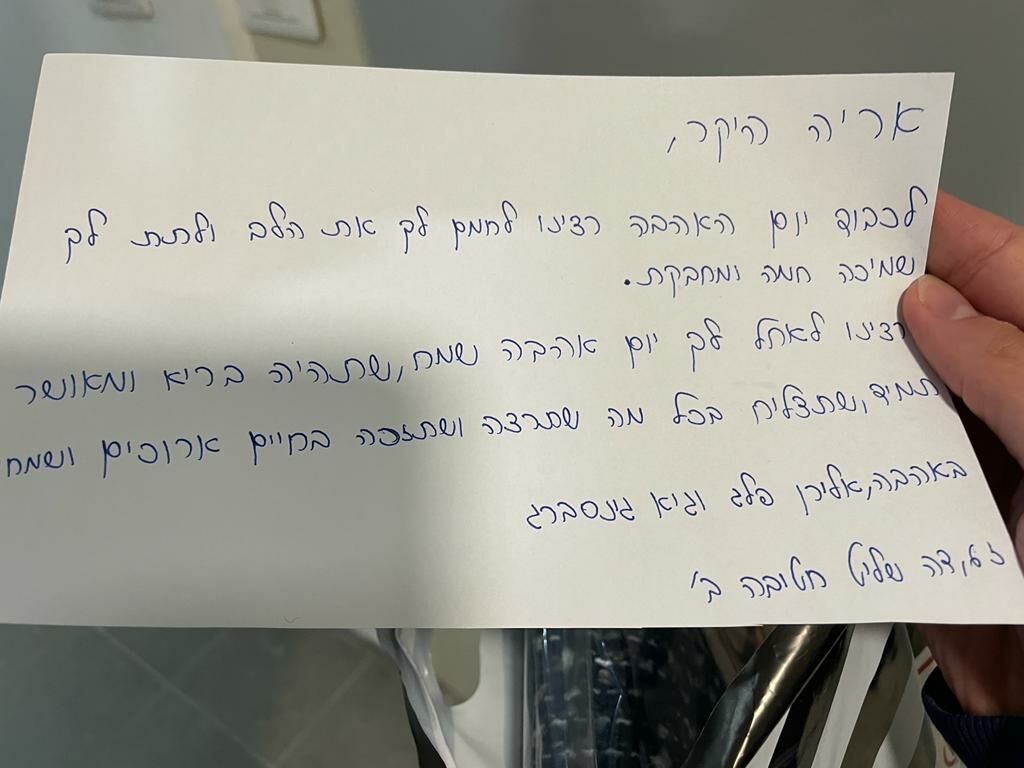 אריה היקר,
לכבוד יום האהבה רצינו לחמם לך את הלב ולתת לך
שמיכה חמה ומחבקת.
רצינו לאחל לך יום אהבה שמח, שתהיה בריא ומאושר
תמיד, שתצליח בכל מה שתרצה ושתזכה בחיים ארוכים ושמח
באהבה, אלירן פלג וגיא גינסברג
דה שליט חטיבה ב'